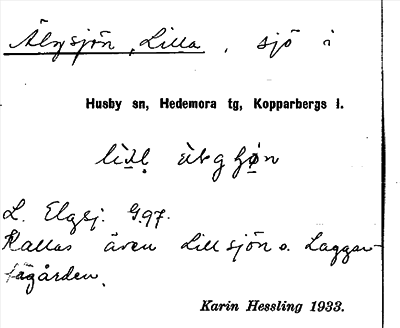 Älgsjön, Lilla, sjö i
Husby sn, Hedemora tg, Kopparbergs l.
L. Elgsj. G97.
Kallas även Lillsjön o. Laggar-
Karin Hessling 1933.